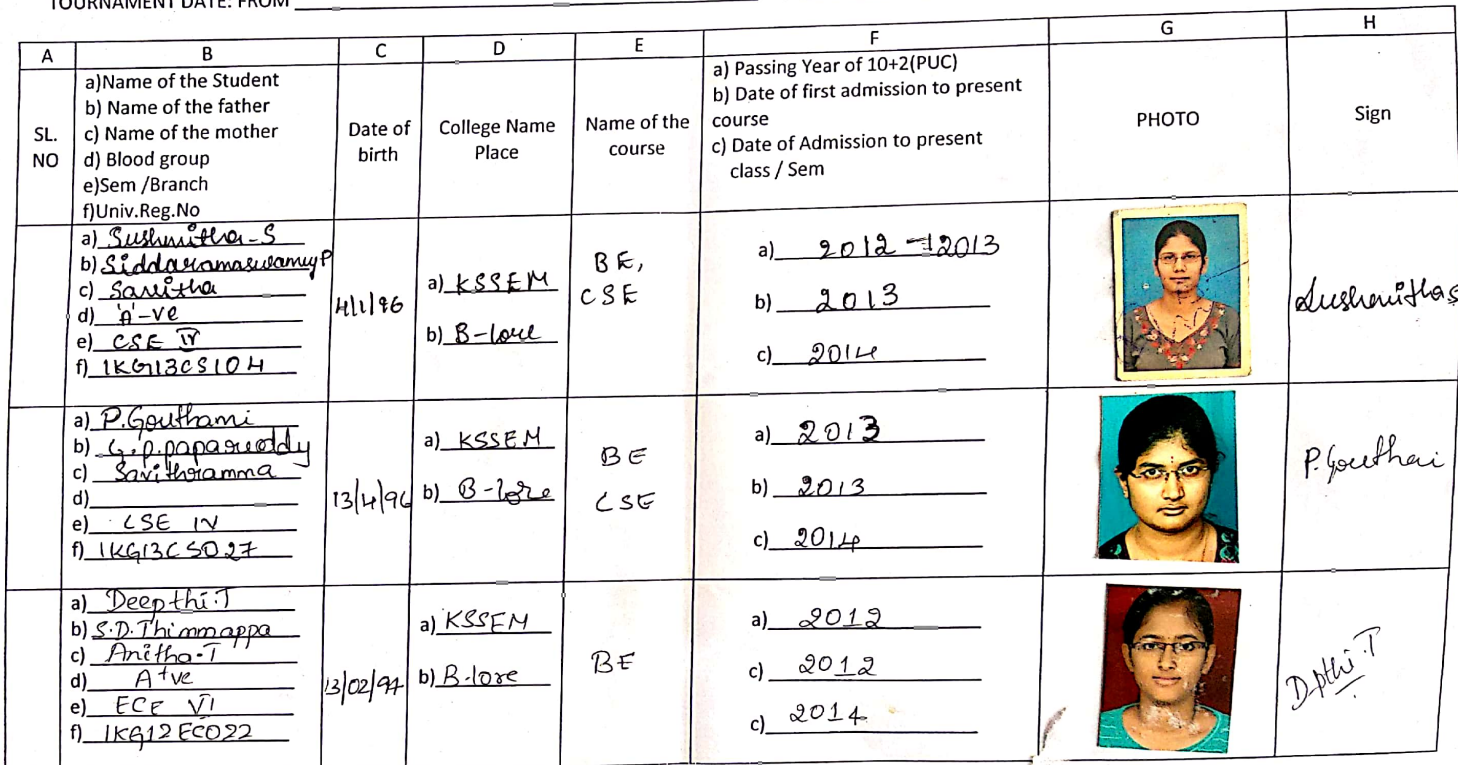 TOURNAMENT DATE: FROM
A B C D E F G H
SL. NO
a)Name of the Student
b) Name of the father
c) Name of the mother
d) Blood group
e)Sem /Branch
f)Univ.Reg.No
Date of birth
College Name Place
Name of the course
a) Passing Year of 10+2(PUC)
b) Date of first admission to present course
c) Date of Admission to present class / Sem
PHOTO
Sign
a) Sushmitha-S
b) Siddaramaswamy P
c) Savitha
d) 'A'-ve
e) CSE IV
f) 1KG13CS104
4/1/96
a) KSSEM
b) B-lore
BE,
CSE
a) 2012-2013
b) 2013
c) 2014
Sushmitha S
a) P.Gouthami
b) G.P.papareddy
c) Savithramma
d)
e) CSE IV
f) 1KG13CS027
13/4/96
a) KSSEM
b) B-lore
BE
CSE
a) 2013
b) 2013
c) 2014
P. Gouthai
a) Deepthi.T
b) S.D.Thimmappa
c) Anitha-T
d) A+ve
e) ECE VI
f) 1KG12EC022
13/02/94
a) KSSEM
b) B-lore
BE
a) 2012
c) 2012
c) 2014
D.pthi.T